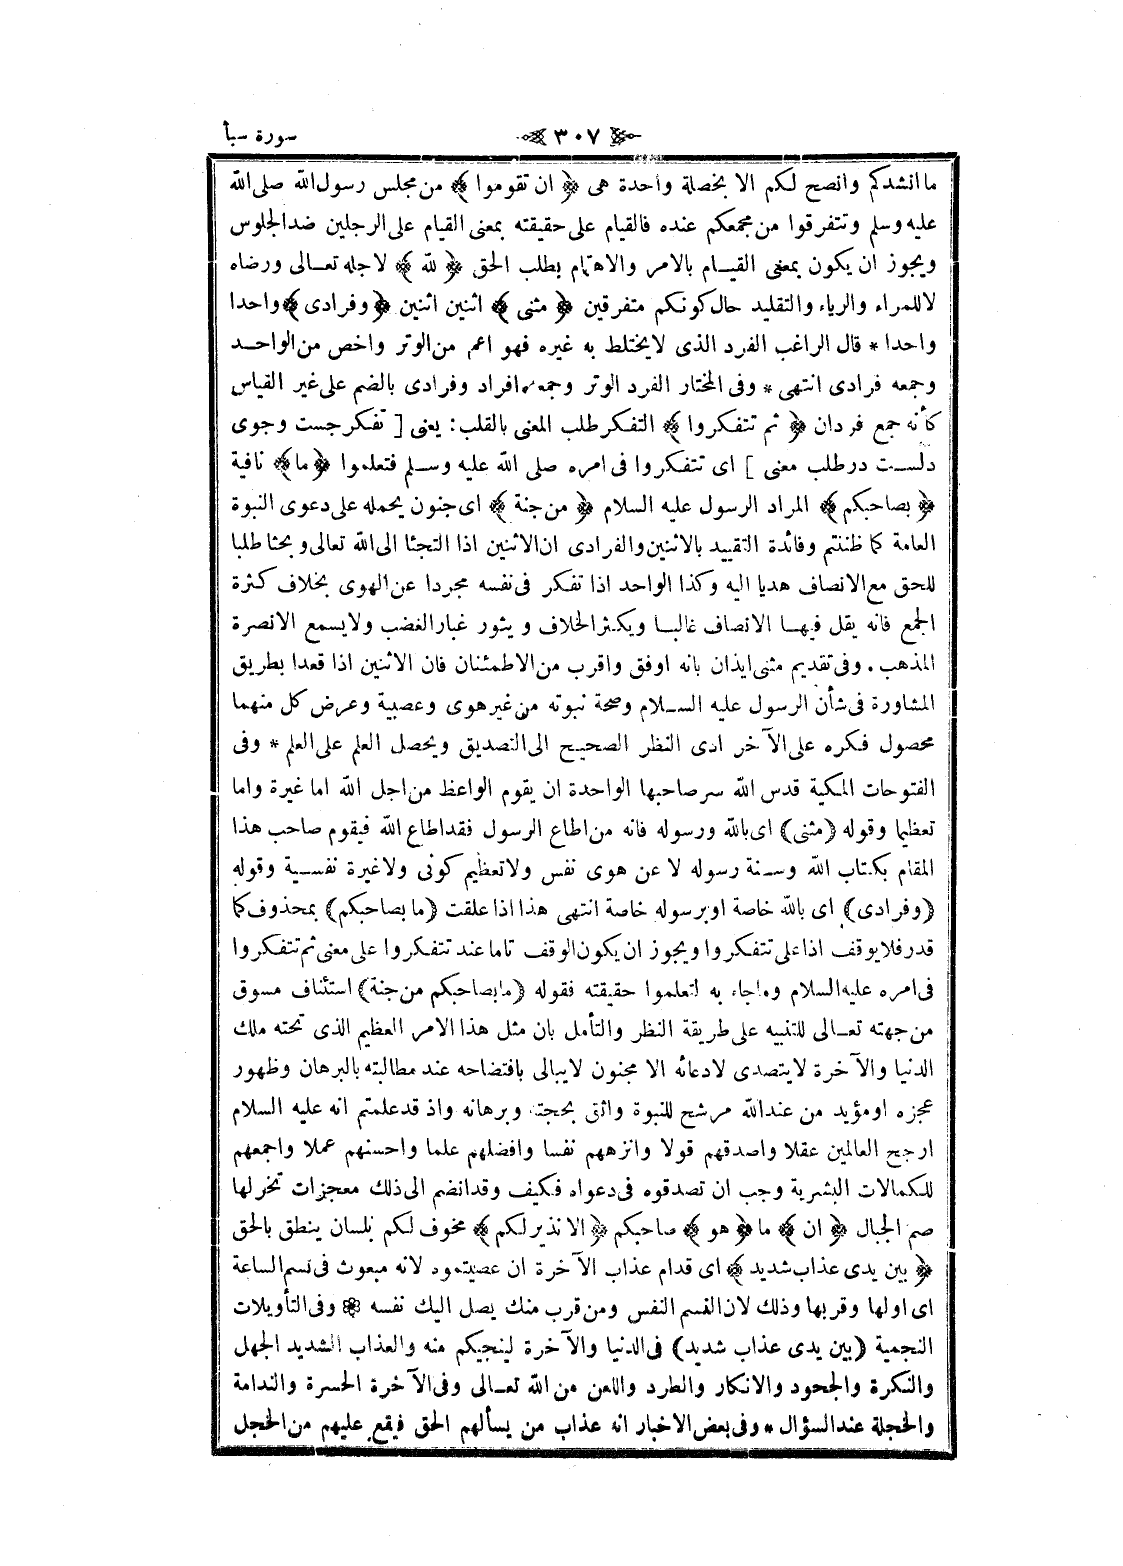 سورة سبأ
٣٠٧
ما انشدكم وانصح لكم الا بخصلة واحدة هى ﴿ ان تقوموا ﴾ من مجلس رسول الله صلى الله
عليه وسلم وتتفرقوا من مجمعكم عنده فالقيام على حقيقته بمعنى القيام على الرجلين ضد الجلوس
ويجوز ان يكون بمعنى القيام بالامر والاهتمام بطلب الحق ﴿ لله ﴾ لاجله تعالى ورضاه
لا للمراء والرياء والتقليد حال كونكم متفرقين ﴿ مثنى ﴾ اثنين اثنين ﴿ وفرادى ﴾ واحدا
واحدا * قال الراغب الفرد الذى لايختلط به غيره فهو اعم من الوتر واخص من الواحد
وجمعه فرادى انتهى * وفى المختار الفرد الوتر وجمعه افراد وفرادى بالضم على غير القياس
كأنه جمع فردان ﴿ ثم تتفكروا ﴾ التفكر طلب المعنى بالقلب : يعنى [ تفكر جست وجوى
دلست در طلب معنى ] اى تتفكروا فى امره صلى الله عليه وسلم فتعلموا ﴿ ما ﴾ نافية
﴿ بصاحبكم ﴾ المراد الرسول عليه السلام ﴿ من جنة ﴾ اى جنون يحمله على دعوى النبوة
العامة كما ظننتم وفائدة التقييد بالاثنين والفرادى ان الاثنين اذا التجئا الى الله تعالى وبحثا طلبا
للحق مع الانصاف هديا اليه وكذا الواحد اذا تفكر فى نفسه مجردا عن الهوى بخلاف كثرة
الجمع فانه يقل فيها الانصاف غالبا ويكثر الخلاف و يثور غبار الغضب ولايسمع الانصرة
المذهب . وفى تقديم مثنى ايذان بانه اوفق واقرب من الاطمئنان فان الاثنين اذا قعدا بطريق
المشاورة فى شأن الرسول عليه السلام وصحة نبوته من غير هوى وعصبية وعرض كل منهما
محصول فكره على الآخر ادى النظر الصحيح الى التصديق ويحصل العلم على العلم * وفى
الفتوحات المكية قدس الله سر صاحبها الواحدة ان يقوم الواعظ من اجل الله اما غيرة واما
تعظيما وقوله (مثنى) اى بالله ورسوله فانه من اطاع الرسول فقد اطاع الله فيقوم صاحب هذا
المقام بكتاب الله وسنة رسوله لا عن هوى نفس ولاتعظيم كونى ولاغيرة نفسية وقوله
(وفرادى) اى بالله خاصة او برسوله خاصة انتهى هذا اذا علقت (ما بصاحبكم) بمحذوف كما
قدر فلايوقف اذا على تتفكروا ويجوز ان يكون الوقف تاما عند تتفكروا على معنى ثم تتفكروا
فى امره عليه السلام وماجاء به لتعلموا حقيقته فقوله (ما بصاحبكم من جنة) استئناف مسوق
من جهته تعالى للتنبيه على طريقة النظر والتأمل بان مثل هذا الامر العظيم الذى تحته ملك
الدنيا والآخرة لايتصدى لادعائه الا مجنون لايبالى بافتضاحه عند مطالبته بالبرهان وظهور
عجزه اومؤيد من عند الله مرشح للنبوة واثق بحجته وبرهانه واذ قد علمتم انه عليه السلام
ارجح العالمين عقلا واصدقهم قولا وانزههم نفسا وافضلهم علما واحسنهم عملا واجمعهم
للكمالات البشرية وجب ان تصدقوه فى دعواه فكيف وقد انضم الى ذلك معجزات تخر لها
صم الجبال ﴿ ان ﴾ ما ﴿ هو ﴾ صاحبكم ﴿ الا نذير لكم ﴾ مخوف لكم بلسان ينطق بالحق
﴿ بين يدى عذاب شديد ﴾ اى قدام عذاب الآخرة ان عصيتموه لانه مبعوث فى نسم الساعة
اى اولها وقربها وذلك لان النسم النفس ومن قرب منك يصل اليك نفسه * وفى التأويلات
النجمية (بين يدى عذاب شديد) فى الدنيا والآخرة لينجيكم منه والعذاب الشديد الجهل
والنكرة والجحود والانكار والطرد واللعن من الله تعالى وفى الآخرة الحسرة والندامة
والخجلة عند السؤال * وفى بعض الاخبار انه عذاب من يسألهم الحق فيقع عليهم من الخجل